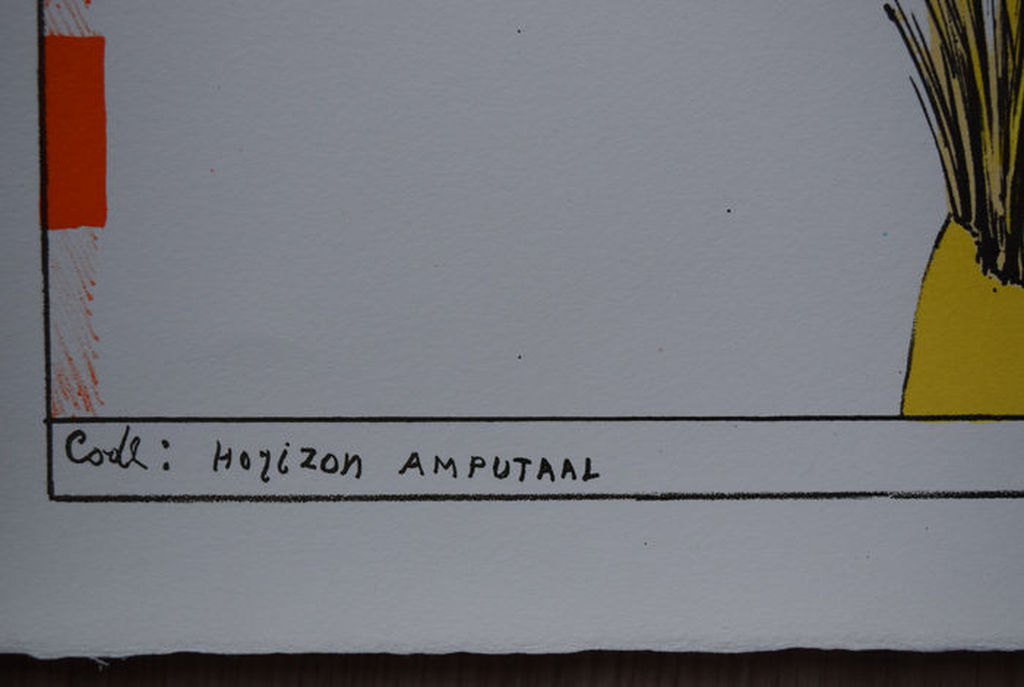 Code: Horizon AMPUTAAL